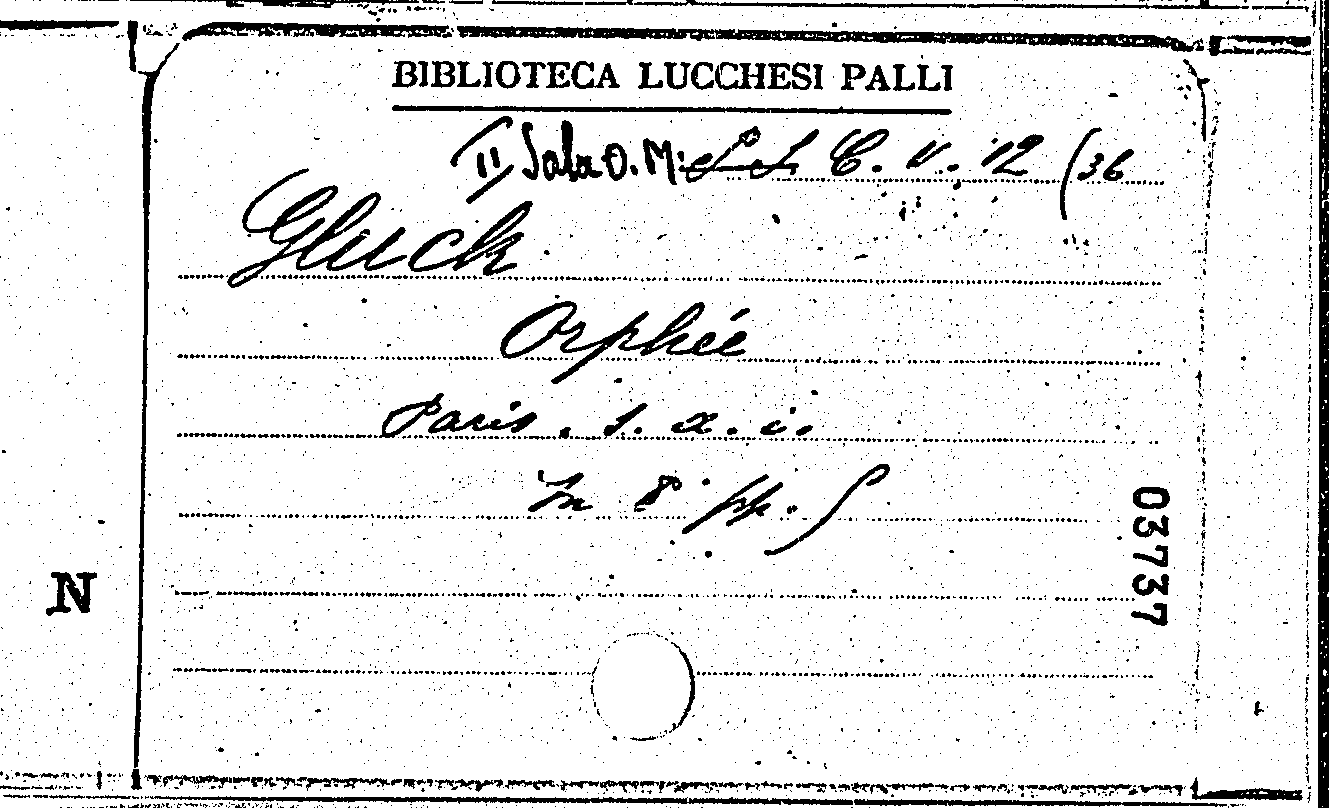 BIBLIOTECA LUCCHESI PALLI
II Sala O. M. C. V. 12 (36
Gluck
Orphée
Paris. s. a. i.
In 8° pp.
03737
N